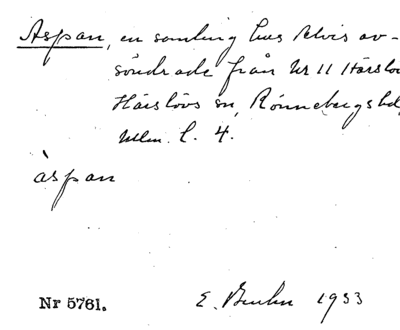 Aspan, en samling hus delvis av-
söndrade från Nr 11 Härslöv
Härslövs sn, Rönnebergs hd,
Mlm. l. 4.
àspan
Nr 5761.
E. 1933